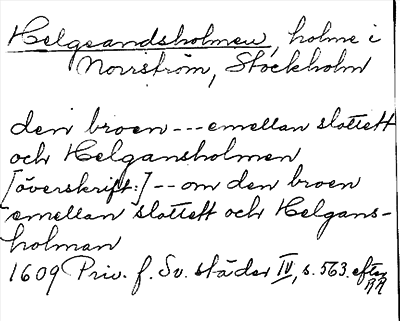 Helgeandsholmen, holme i
Norrström, Stockholm
den broen --- emellan slottett
och Helgansholmen
[överskrift:] -- om den broen
emellan slottett och Helgans-
holman
1609 Priv. f. Sv. städer IV, s. 563. efter
RA